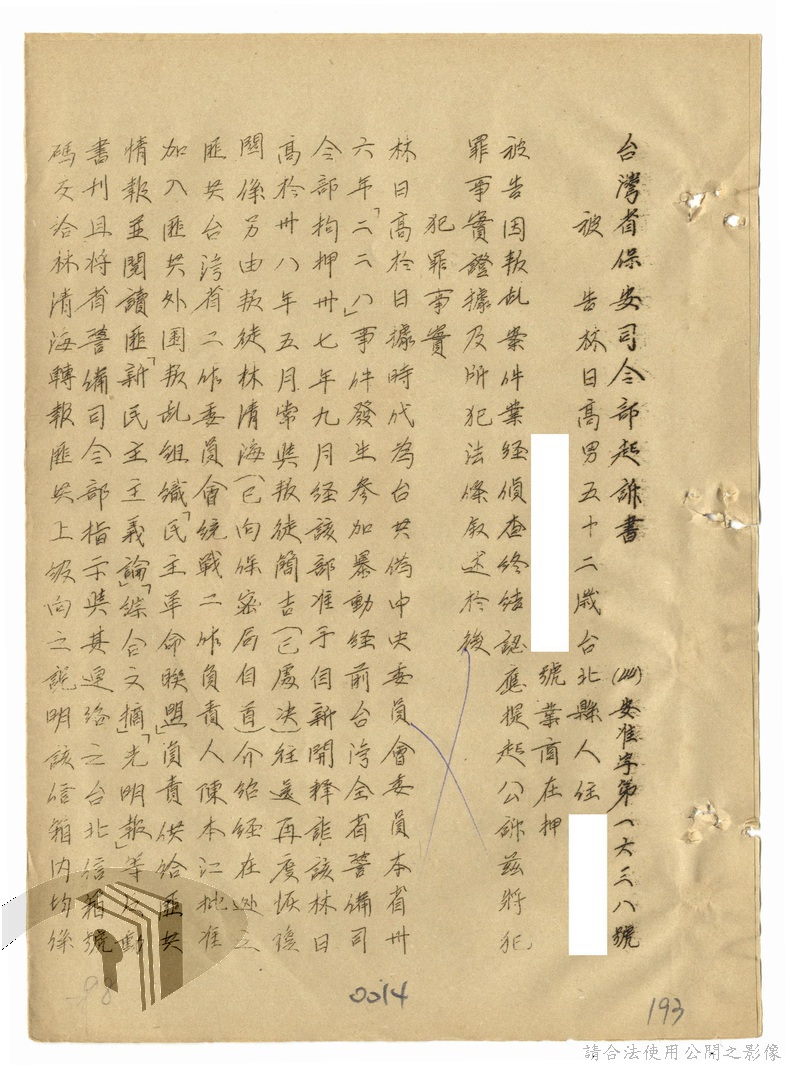 台灣省保安司令部起訴書
(44)安准字第一六三八號
被告林日高男五十二歲台北縣人住
號業商在押
被告因叛乱案件業経偵查終結認應提起公訴茲將犯
罪事實證據及所犯法條叙述於後
犯罪事實
林日高於日據時代為台共偽中央委員會委員本省卅
六年「二二八」事件發生參加暴動経前台灣全省警備司
令部拘押卅七年九月経該部准予自新開釋詎該林日
高於卅八年五月常與叛徒簡吉(已處决)往還再度恢復
關係另由叛徒林清海(已向保密局自首)介紹経在逃之
匪共台灣省工作委員會統戰工作負責人陳本江批准
加入匪共外围叛乱組織「民主革命聯盟」負責供給匪共
情報並閱讀匪「新民主主義論」「綜合文摘」「光明報」等反動
書刊且將省警備司令部指示與其連絡之台北信箱號
碼交給林清海轉報匪共上級向之說明該信箱内均係
98
0014
193
請合法使用公開之影像